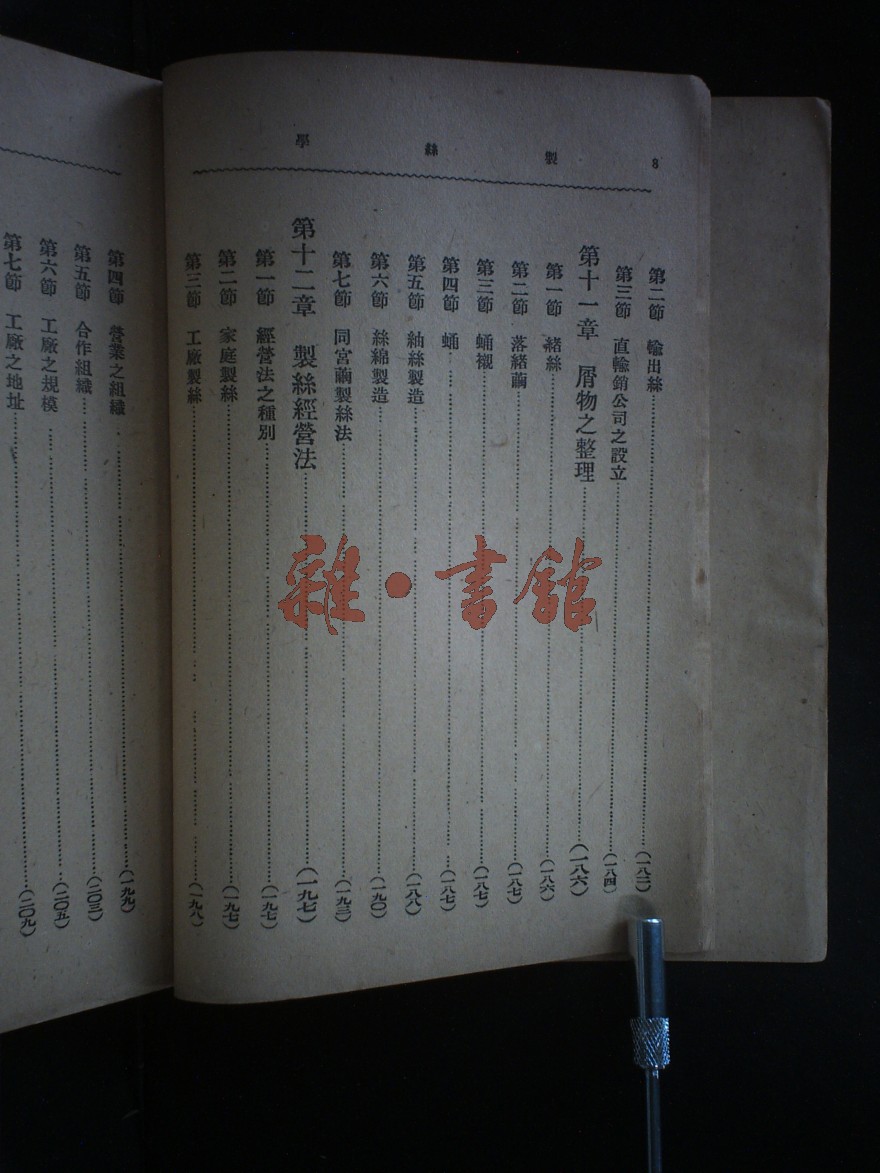 8 製絲學
第二節 輸出絲(一八二)
第三節 直輸銷公司之設立(一八四)
第十一章 屑物之整理(一八六)
第一節 緒絲(一八六)
第二節 落緒繭(一八七)
第三節 蛹襯(一八七)
第四節 蛹(一八七)
第五節 紬絲製造(一八八)
第六節 絲綿製造(一九〇)
第七節 同宮繭製絲法(一九三)
第十二章 製絲經營法(一九七)
第一節 經營法之種別(一九七)
第二節 家庭製絲(一九七)
第三節 工廠製絲(一九八)
第四節 營業之組織(一九九)
第五節 合作組織(二〇三)
第六節 工廠之規模(二〇五)
第七節 工廠之地址(二〇九)
雜·書館